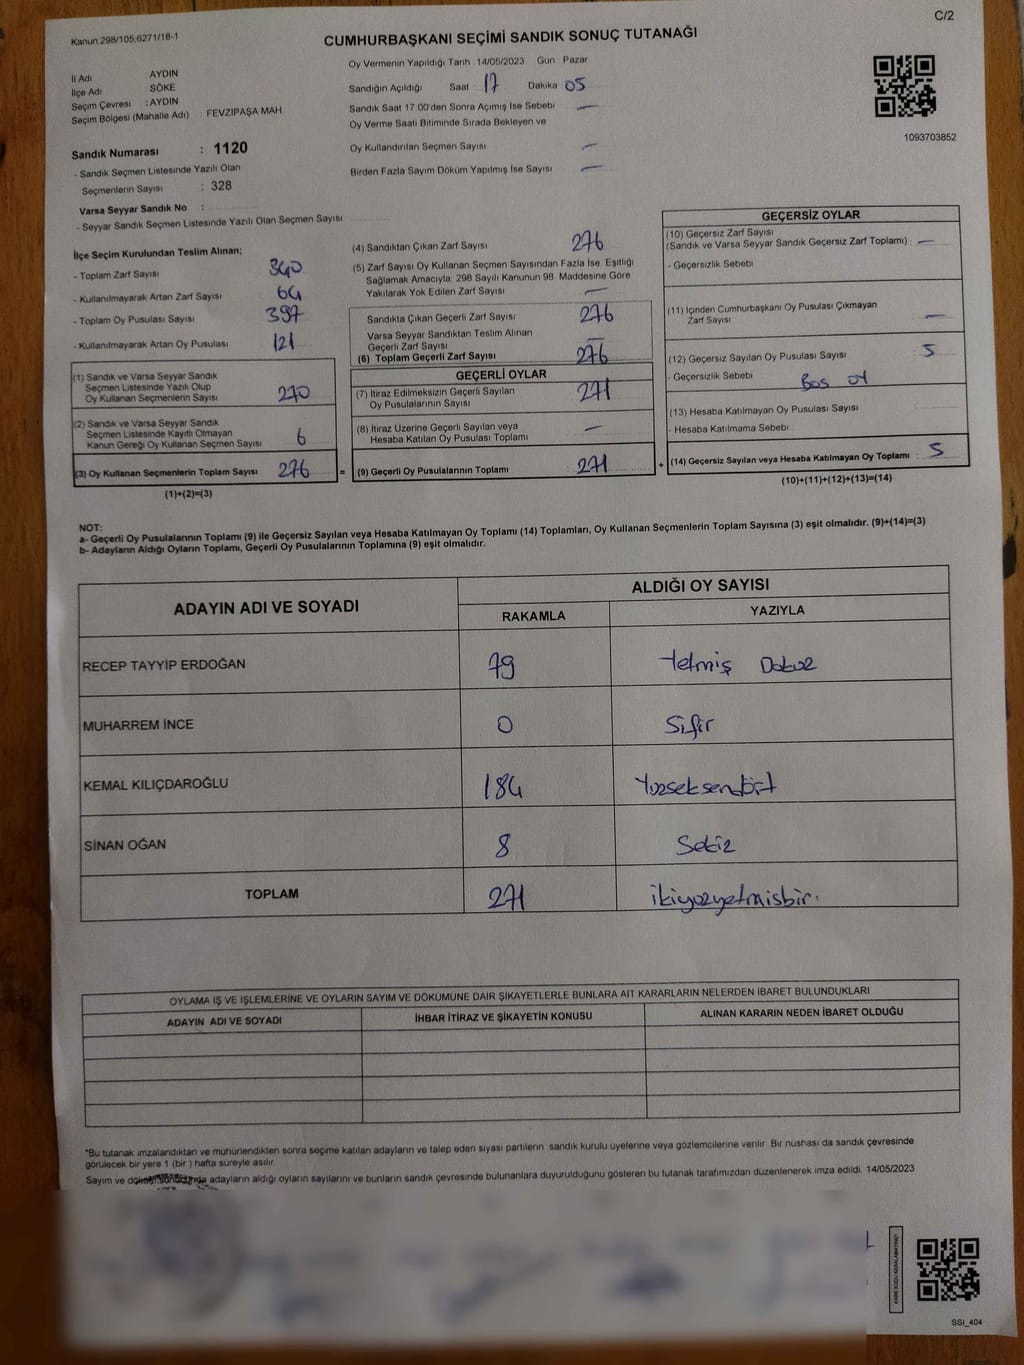 C/2
Kanun:298/105;6271/18-1
CUMHURBAŞKANI SEÇİMİ SANDIK SONUÇ TUTANAĞI
İl Adı : AYDIN
İlçe Adı : SÖKE
Seçim Çevresi : AYDIN
Seçim Bölgesi (Mahalle Adı) FEVZİPAŞA MAH
Sandık Numarası : 1120
- Sandık Seçmen Listesinde Yazılı Olan
Seçmenlerin Sayısı : 328
Varsa Seyyar Sandık No :
- Seyyar Sandık Seçmen Listesinde Yazılı Olan Seçmen Sayısı
Oy Vermenin Yapıldığı Tarih 14/05/2023 Gün Pazar
Sandığın Açıldığı Saat 17 Dakika 05
Sandık Saat 17 00'den Sonra Açımış İse Sebebi —
Oy Verme Saati Bitiminde Sırada Bekleyen ve
Oy Kullandırılan Seçmen Sayısı —
Birden Fazla Sayım Döküm Yapılmış İse Sayısı —
1093703852
İlçe Seçim Kurulundan Teslim Alınan;
- Toplam Zarf Sayısı 340
- Kullanılmayarak Artan Zarf Sayısı 64
- Toplam Oy Pusulası Sayısı 397
- Kullanılmayarak Artan Oy Pusulası 121
(1) Sandık ve Varsa Seyyar Sandık
Seçmen Listesinde Yazılı Olup
Oy Kullanan Seçmenlerin Sayısı 270
(2) Sandık ve Varsa Seyyar Sandık
Seçmen Listesinde Kayıtlı Olmayan
Kanun Gereği Oy Kullanan Seçmen Sayısı 6
(3) Oy Kullanan Seçmenlerin Toplam Sayısı 276
(1)+(2)=(3)
(4) Sandıktan Çıkan Zarf Sayısı 276
(5) Zarf Sayısı Oy Kullanan Seçmen Sayısından Fazla İse, Eşitliği
Sağlamak Amacıyla; 298 Sayılı Kanunun 98. Maddesine Göre
Yakılarak Yok Edilen Zarf Sayısı —
Sandıkta Çıkan Geçerli Zarf Sayısı 276
Varsa Seyyar Sandıktan Teslim Alınan
Geçerli Zarf Sayısı —
(6) Toplam Geçerli Zarf Sayısı 276
GEÇERLİ OYLAR
(7) İtiraz Edilmeksizin Geçerli Sayılan
Oy Pusulalarının Sayısı 271
(8) İtiraz Üzerine Geçerli Sayılan veya
Hesaba Katılan Oy Pusulası Toplamı —
= (9) Geçerli Oy Pusulalarının Toplamı 271
GEÇERSİZ OYLAR
(10) Geçersiz Zarf Sayısı
(Sandık ve Varsa Seyyar Sandık Geçersiz Zarf Toplamı) : —
- Geçersizlik Sebebi
(11) İçinden Cumhurbaşkanı Oy Pusulası Çıkmayan
Zarf Sayısı —
(12) Geçersiz Sayılan Oy Pusulası Sayısı 5
- Geçersizlik Sebebi Boş oy
(13) Hesaba Katılmayan Oy Pusulası Sayısı
- Hesaba Katılmama Sebebi
+ (14) Geçersiz Sayılan veya Hesaba Katılmayan Oy Toplamı : 5
(10)+(11)+(12)+(13)=(14)
NOT:
a- Geçerli Oy Pusulalarının Toplamı (9) ile Geçersiz Sayılan veya Hesaba Katılmayan Oy Toplamı (14) Toplamları, Oy Kullanan Seçmenlerin Toplam Sayısına (3) eşit olmalıdır. (9)+(14)=(3)
b- Adayların Aldığı Oyların Toplamı, Geçerli Oy Pusulalarının Toplamına (9) eşit olmalıdır.
ADAYIN ADI VE SOYADI
ALDIĞI OY SAYISI
RAKAMLA YAZIYLA
RECEP TAYYİP ERDOĞAN 79 Yetmiş Dokuz
MUHARREM İNCE 0 Sıfır
KEMAL KILIÇDAROĞLU 184 Yüzseksendört
SİNAN OĞAN 8 Sekiz
TOPLAM 271 ikiyüzyetmişbir.
OYLAMA İŞ VE İŞLEMLERİNE VE OYLARIN SAYIM VE DÖKÜMÜNE DAİR ŞİKAYETLERLE BUNLARA AİT KARARLARIN NELERDEN İBARET BULUNDUKLARI
ADAYIN ADI VE SOYADI İHBAR İTİRAZ VE ŞİKAYETİN KONUSU ALINAN KARARIN NEDEN İBARET OLDUĞU
*Bu tutanak imzalandıktan ve mühürlendikten sonra seçime katılan adayların ve talep eden siyasi partilerin sandık kurulu üyelerine veya gözlemcilerine verilir. Bir nüshası da sandık çevresinde
görülecek bir yere 1 (bir ) hafta süreyle asılır
Sayım ve döküm sonucunda adayların aldığı oyların sayılarını ve bunların sandık çevresinde bulunanlara duyurulduğunu gösteren bu tutanak tarafımızdan düzenlenerek imza edildi. 14/05/2023
SSI_404